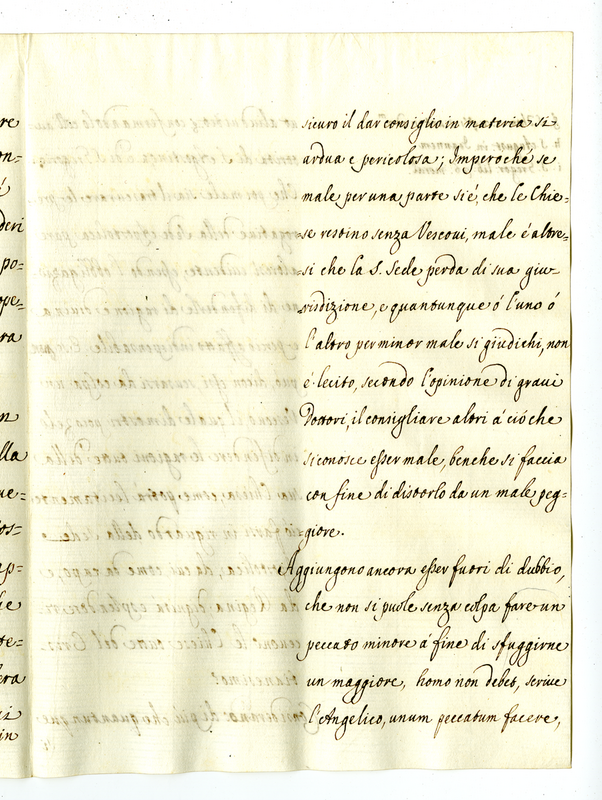 re
on-
deri
po-
pe-
ra
n
lla
ue-
os-
ap-
he
te-
era
in
sicuro il dar consiglio in materia si
ardua e pericolosa; Imperoche se
male per una parte si é, che le Chie-
se restino senza Vescovi, male é altre-
si che la S. Sede perda di sua giu-
risdizione, e quantunque ó l'uno ó
l'altro per minor male si giudichi, non
é lecito, secondo l'opinione di gravi
Dottori, il consigliare altri á ció che
si conosce esser male, benche si faccia
con fine di distorlo da un male peg-
giore.
Aggiungono ancora esser fuori di dubbio,
che non si puole senza colpa fare un
peccato minore á fine di sfuggirne
un maggiore, homo non debet, scrive
l'Angelico, unum peccatum facere,